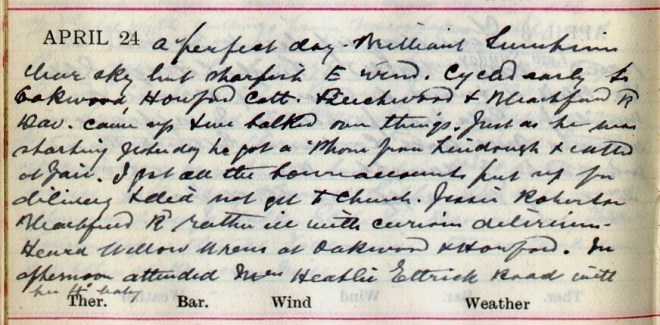 APRIL 24 A perfect day. Brilliant Sunshine
clear sky but sharpish E wind. Cycled early to
Oakwood Howford Cott. Beechwood & Heathfield R
Dav. came up & we talked over things. Just as he was
starting yesterday he got a 'Phone from & called
at Fair. I got all the accounts put up for
delivery & did not get to Church. Jessie Roberton
Heathfield R rather ill with curious delirium.
Heard Willow Wrens at Oakwood & Howford. In
afternoon attended Mrs Heatlie Ettrick Road with
her baby
Ther. Bar. Wind Weather